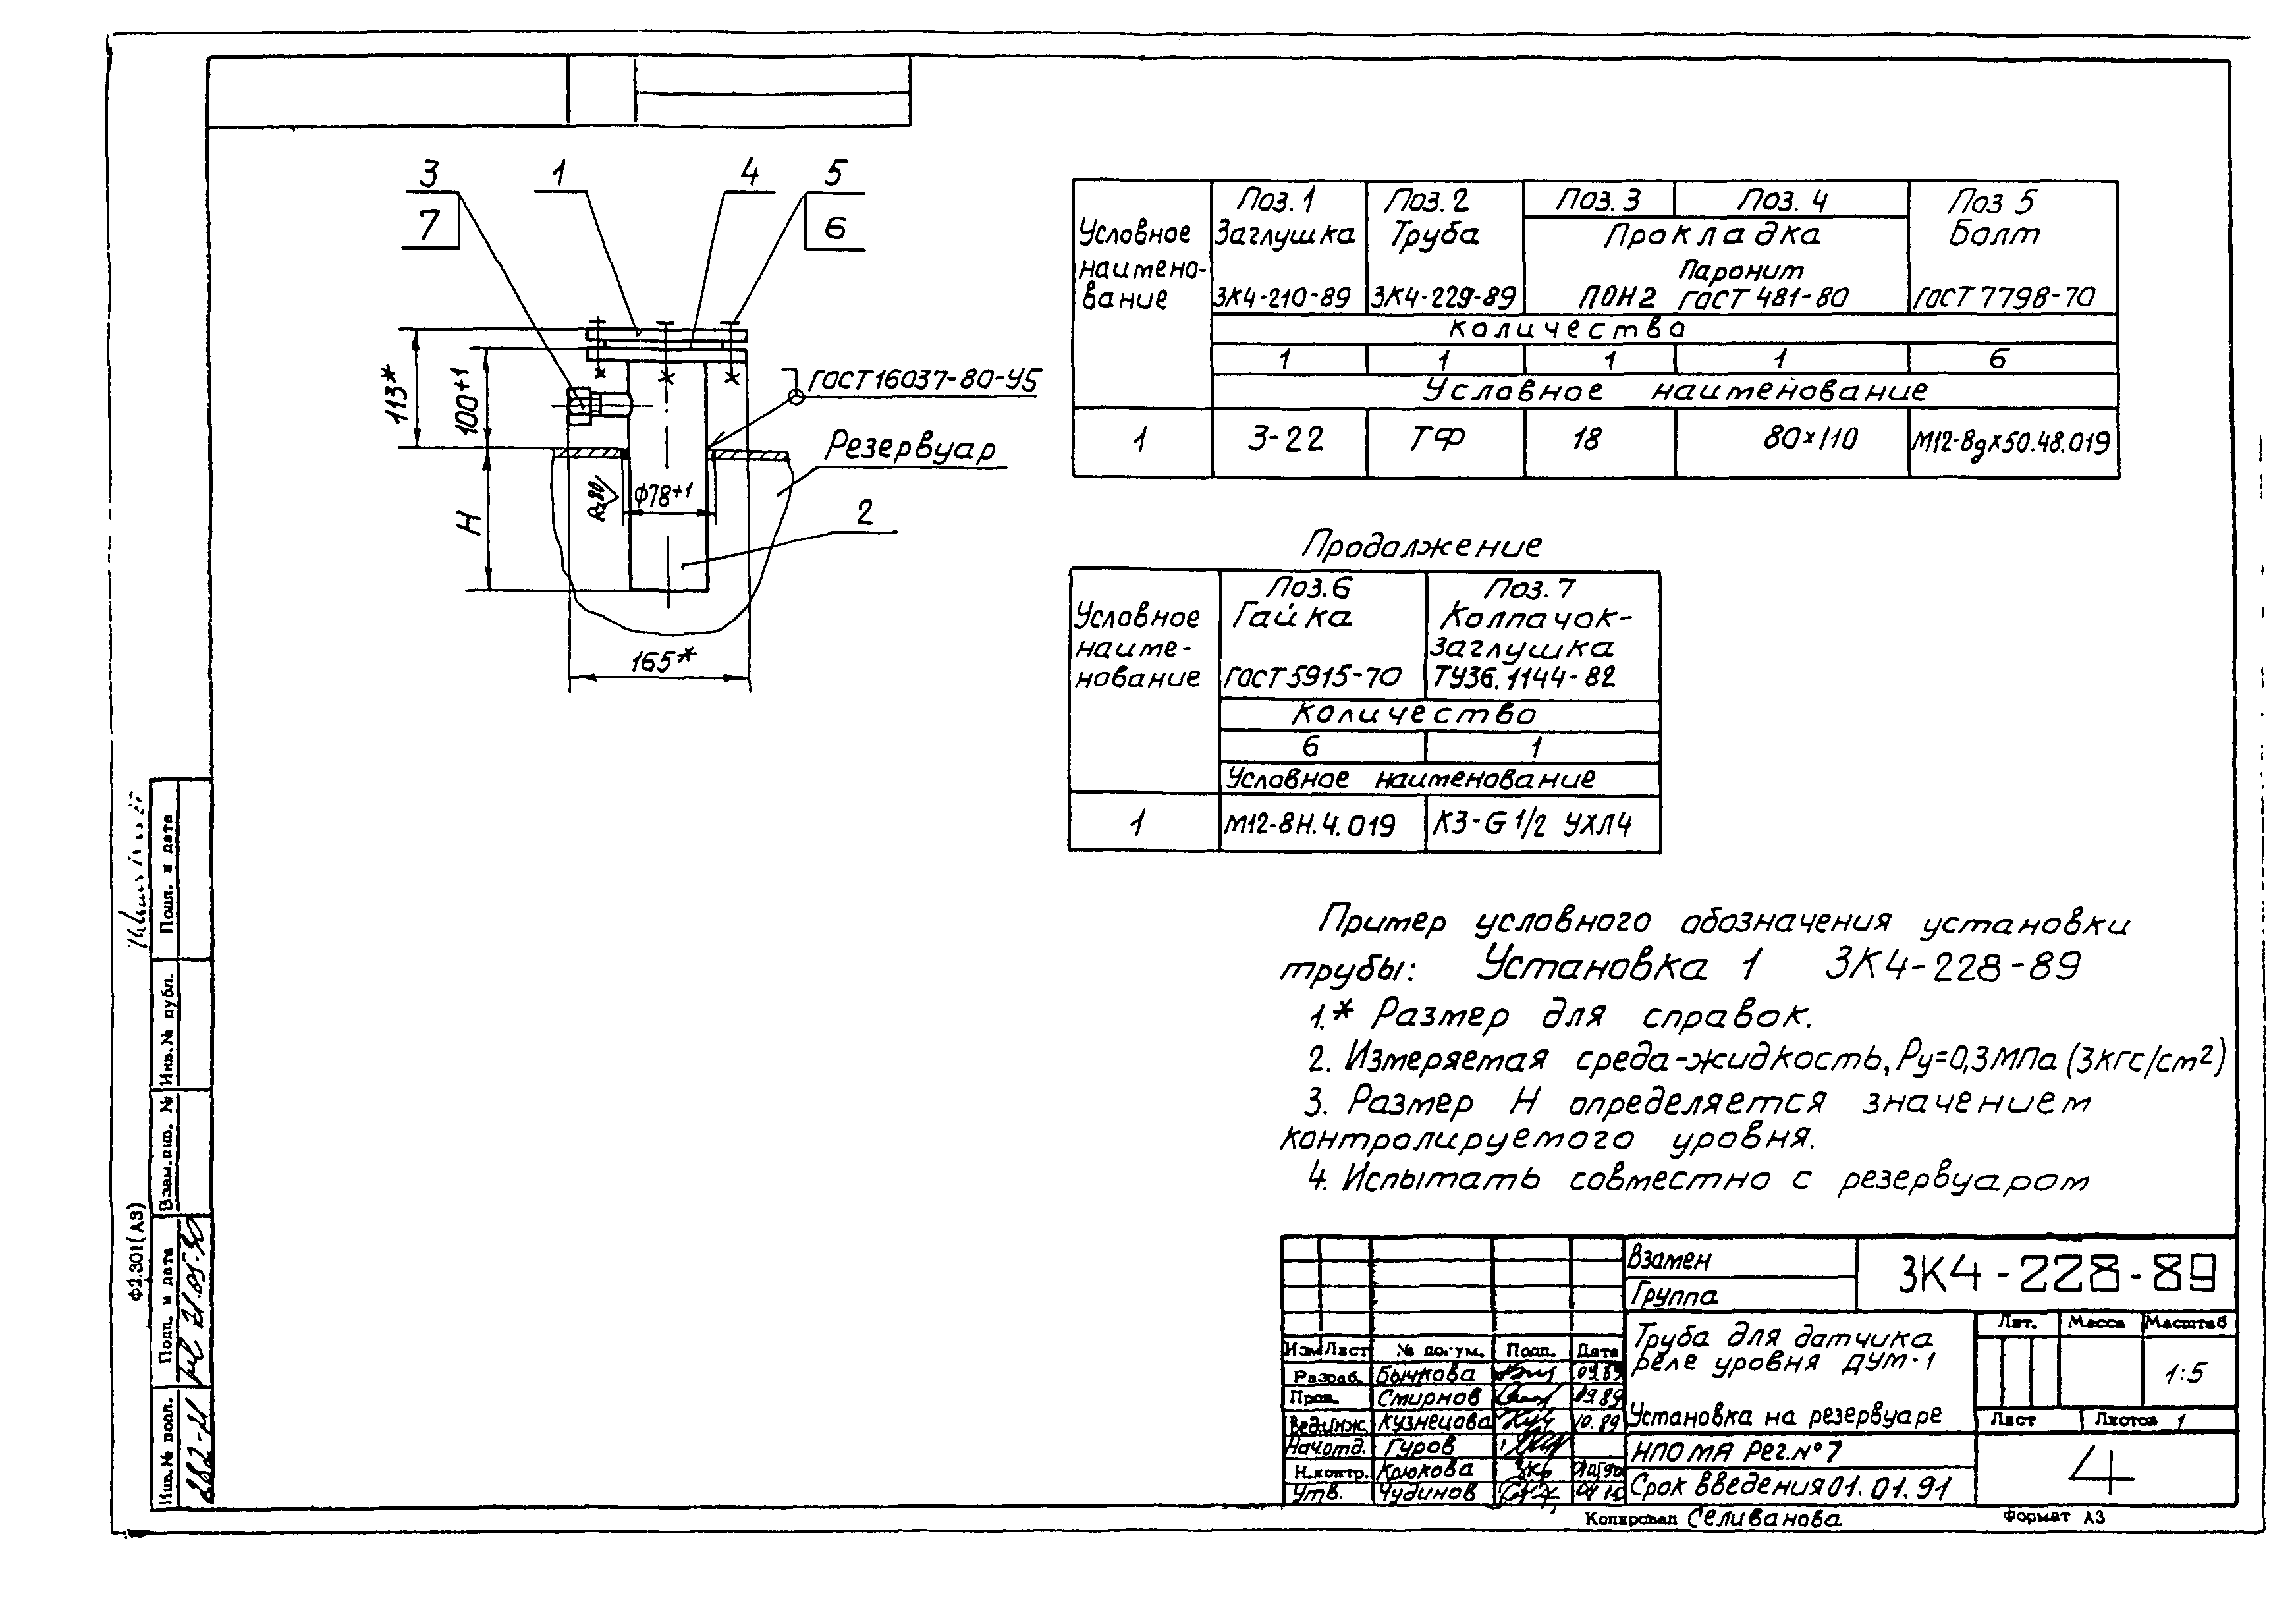 3
7
1
4
5
6
113*
100+1
H
ГОСТ16037-80-У5
Резервуар
Rz80
ф78+1
2
165*
Условное наимено- вание
Поз. 1 Заглушка 3К4-210-89
Поз. 2 Труба 3К4-229-89
Поз. 3
Поз. 4
Прокладка
Паронит
ПОН2 ГОСТ 481-80
Поз 5 Болт ГОСТ 7798-70
Количество
1 1 1 1 6
Условное наименование
1 3-22 ТФ 18 80×110 М12-8gх50.48.019
Продолжение
Условное наиме- нование
Поз.6 Гайка ГОСТ 5915-70
Поз. 7 Колпачок- заглушка ТУ36.1144-82
Количество
6 1
Условное наименование
1 М12-8Н.4.019 КЗ-G1/2 УХЛ4
Пример условного обозначения установки
трубы: Установка 1 3К4-228-89
1.* Размер для справок.
2. Измеряемая среда-жидкость, Ру=0,3МПа (3кгс/см²)
3. Размер Н определяется значением
контролируемого уровня.
4. Испытать совместно с резервуаром
Взамен
Группа
3К4-228-89
Труба для датчика
реле уровня ДУМ-1
Установка на резервуаре
Лит. Масса Масштаб
1:5
Лист Листов 1
НПО МА Рег.№7
Срок введения 01.01.91
4
Изм Лист № докум. Подп. Дата
Разраб. Бычкова 09.89
Пров. Смирнов 09.89
Вед.инж. Кузнецова 10.89
Нач.отд. Гуров
Н.контр. Крюкова
Утв. Чудинов
Копировал Селиванова
Формат А3
Подп. и дата
Инв.№ дубл.
Взам.инв. №
Подп. и дата
21.05.90
Инв.№ подл.
Ф2.301(А3)